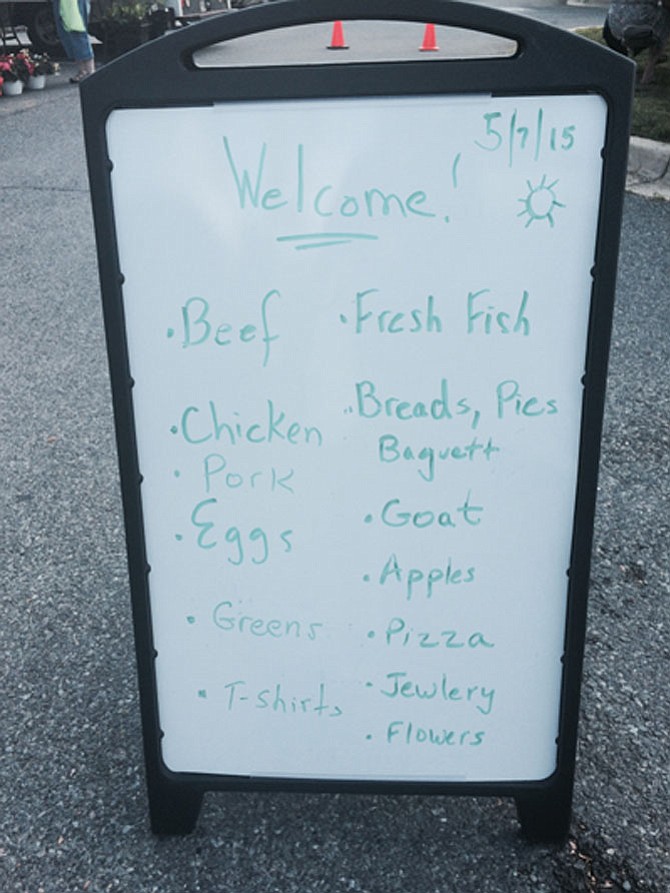 5/7/15
Welcome!
• Beef
• Chicken
• Pork
• Eggs
• Greens
• T-Shirts
• Fresh Fish
• Breads, Pies
Baguett
• Goat
• Apples
• Pizza
• Jewlery
• Flowers